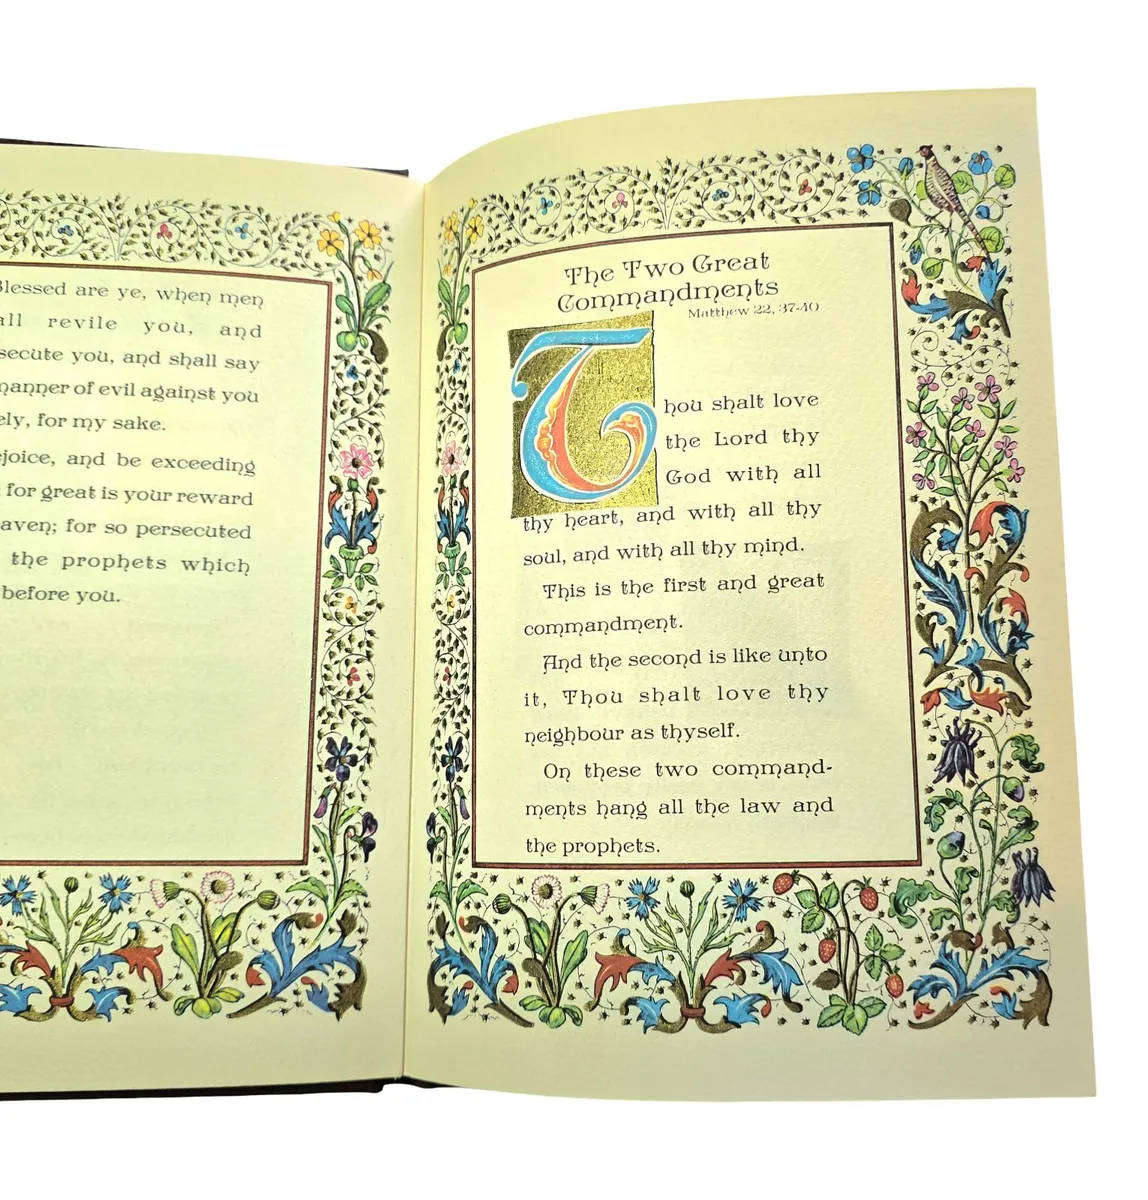 Blessed are ye, when men
all revile you, and
secute you, and shall say
manner of evil against you
ely, for my sake.
ejoice, and be exceeding
for great is your reward
eaven; for so persecuted
the prophets which
before you.
The Two Great
Commandments
Matthew 22, 37-40
Thou shalt love
the Lord thy
God with all
thy heart, and with all thy
soul, and with all thy mind.
This is the first and great
commandment.
And the second is like unto
it, Thou shalt love thy
neighbour as thyself.
On these two command-
ments hang all the law and
the prophets.